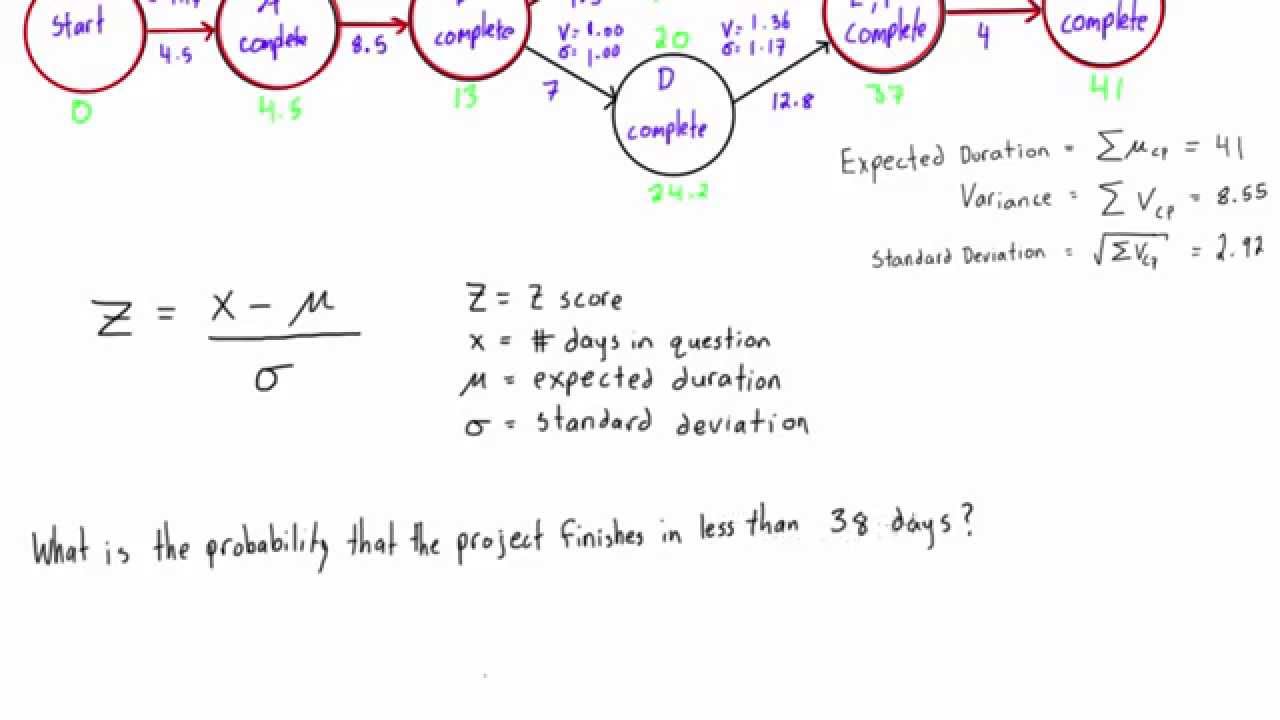 Start
4.5
A
complete
8.5
complete
V= 1.00
σ= 1.00
20
V= 1.36
σ= 1.17
complete
4
complete
0
4.5
13
7
D
complete
12.8
37
41
24.2
Expected Duration = Σμcp = 41
Variance = Σ Vcp = 8.55
Standard Deviation = √ΣVcp = 2.92
Z = x - μ
σ
Z = Z score
x = # days in question
μ = expected duration
σ = standard deviation
What is the probability that the project finishes in less than 38 days?